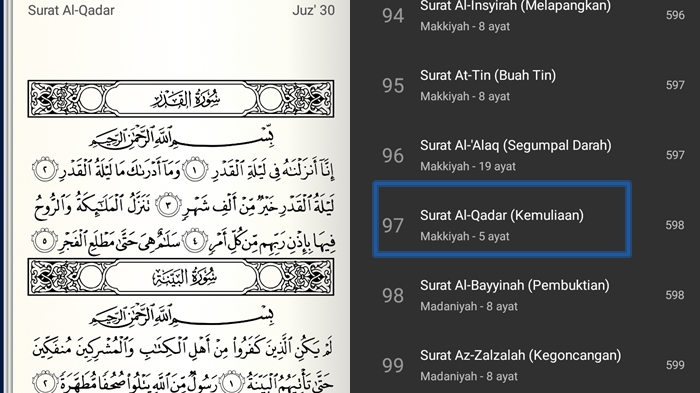 Surat Al-Qadar
Juz' 30
سُورَةُ الْقَدْرِ
بِسْمِ اللَّهِ الرَّحْمَٰنِ الرَّحِيمِ
إِنَّا أَنزَلْنَٰهُ فِى لَيْلَةِ الْقَدْرِ ١ وَمَا أَدْرَىٰكَ مَا لَيْلَةُ الْقَدْرِ ٢
لَيْلَةُ الْقَدْرِ خَيْرٌ مِّنْ أَلْفِ شَهْرٍ ٣ تَنَزَّلُ الْمَلَٰٓئِكَةُ وَالرُّوحُ
فِيهَا بِإِذْنِ رَبِّهِم مِّن كُلِّ أَمْرٍ ٤ سَلَٰمٌ هِىَ حَتَّىٰ مَطْلَعِ الْفَجْرِ ٥
سُورَةُ الْبَيِّنَةِ
بِسْمِ اللَّهِ الرَّحْمَٰنِ الرَّحِيمِ
لَمْ يَكُنِ الَّذِينَ كَفَرُوا۟ مِنْ أَهْلِ الْكِتَٰبِ وَالْمُشْرِكِينَ مُنفَكِّينَ
حَتَّىٰ تَأْتِيَهُمُ الْبَيِّنَةُ ١ رَسُولٌ مِّنَ اللَّهِ يَتْلُوا۟ صُحُفًا مُّطَهَّرَةً ٢
94 Surat Al-Insyirah (Melapangkan) 596
Makkiyah - 8 ayat
95 Surat At-Tin (Buah Tin) 597
Makkiyah - 8 ayat
96 Surat Al-'Alaq (Segumpal Darah) 597
Makkiyah - 19 ayat
97 Surat Al-Qadar (Kemuliaan) 598
Makkiyah - 5 ayat
98 Surat Al-Bayyinah (Pembuktian) 598
Madaniyah - 8 ayat
99 Surat Az-Zalzalah (Kegoncangan) 599
Madaniyah - 8 ayat